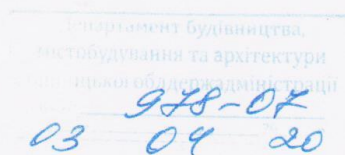 Департамент будівництва,
містобудування та архітектури
облдержадміністрації
978-07
03 04 20